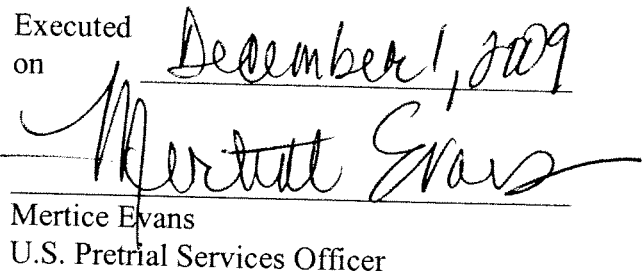 Executed
on December 1, 2009
Mertice Evans
Mertice Evans
U.S. Pretrial Services Officer